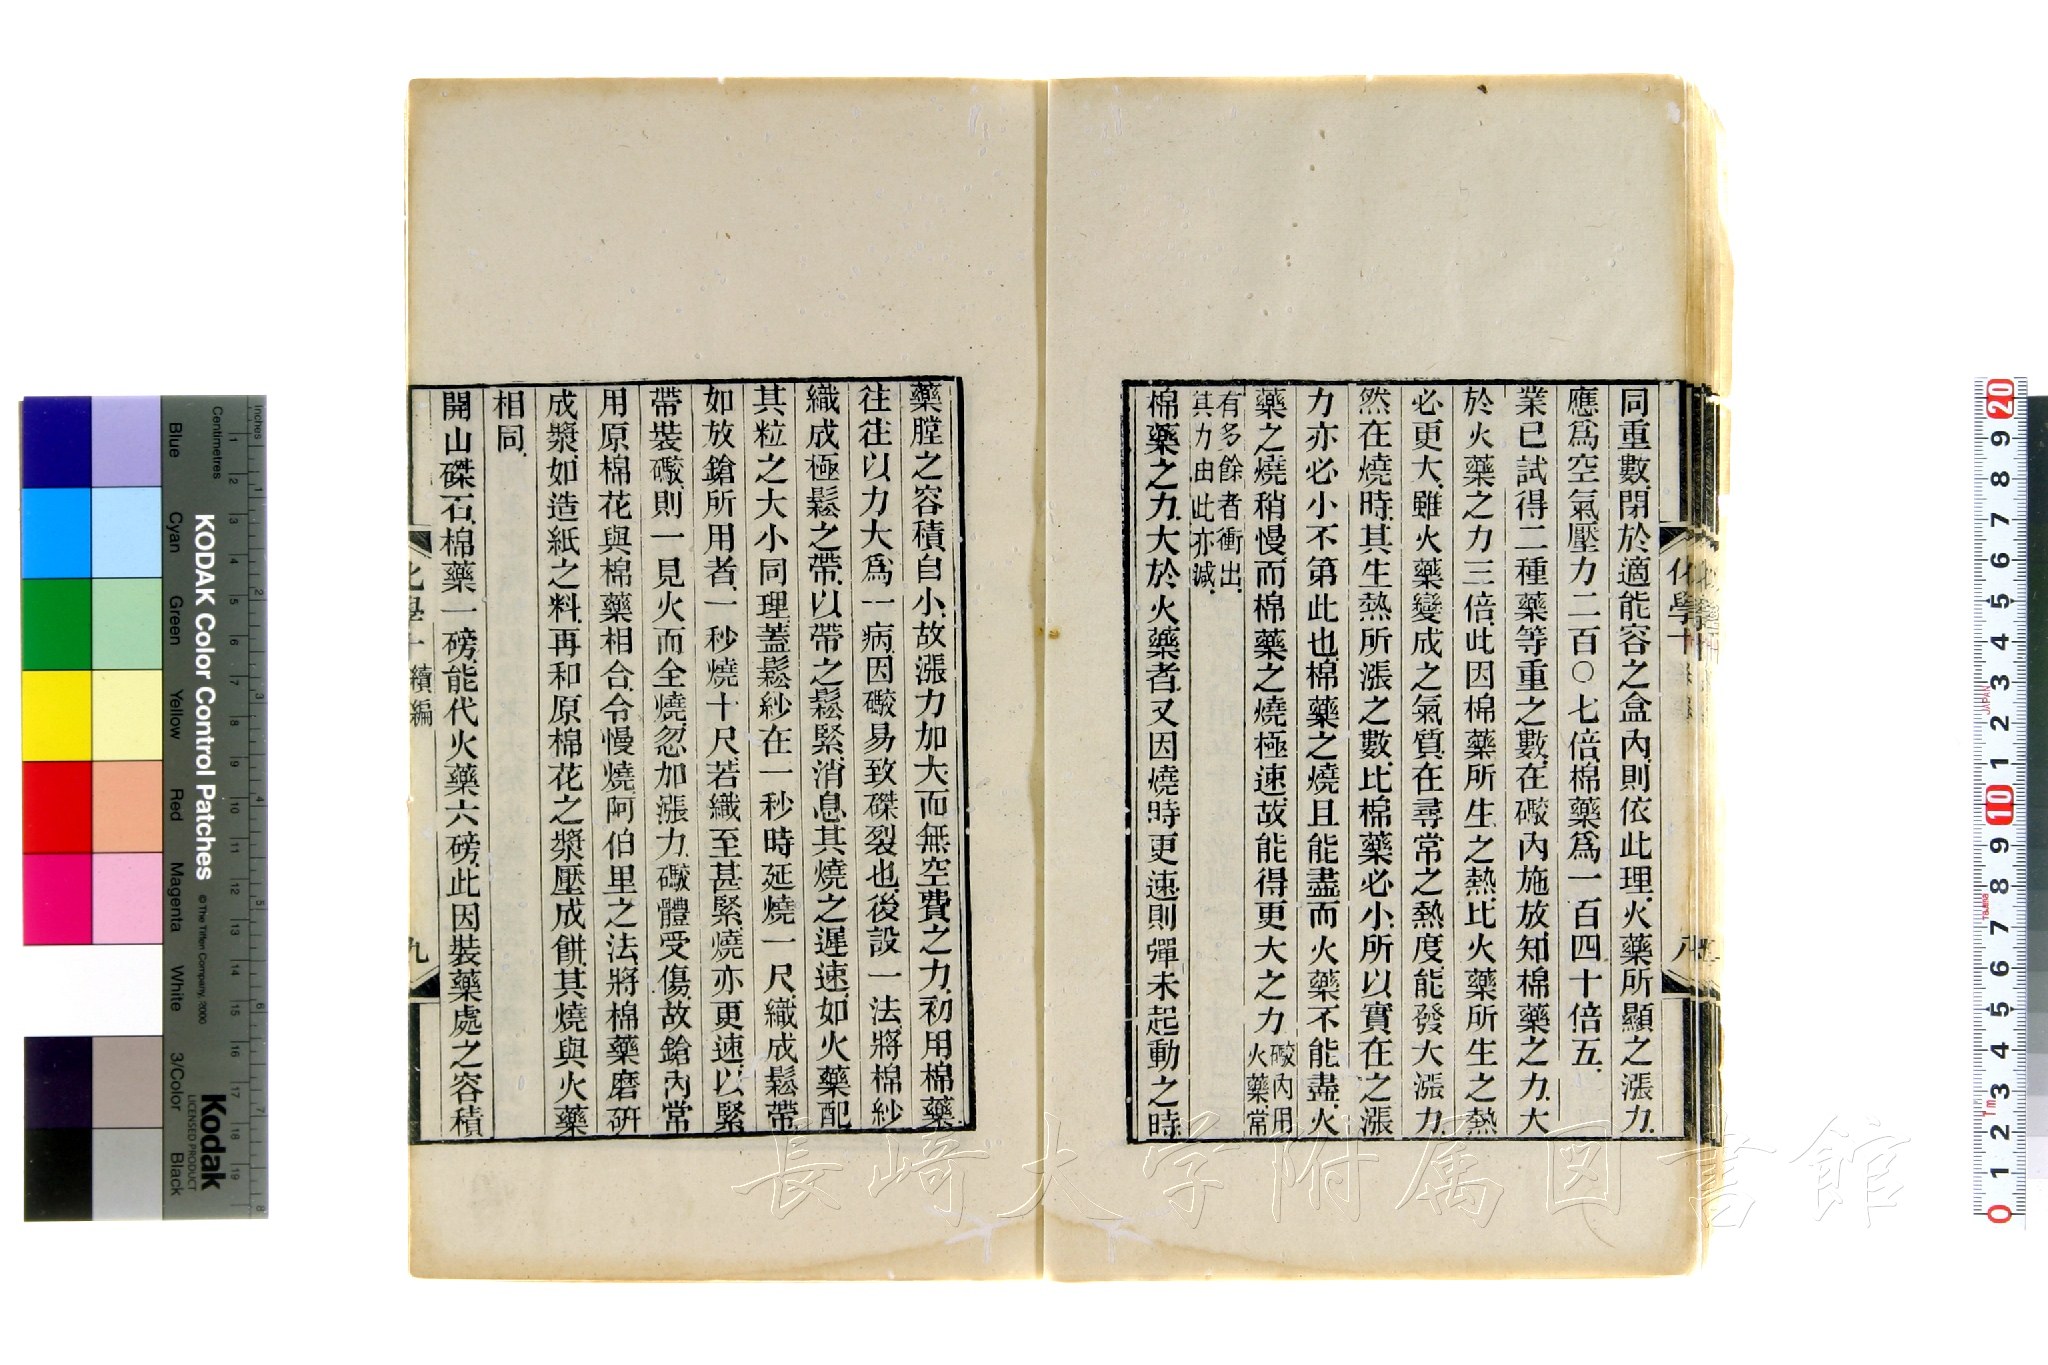 同重數閉於適能容之盒內則依此理火藥所顯之漲力
應爲空氣壓力二百〇七倍棉藥爲一百四十倍五
業已試得二種藥等重之數在礮內施放知棉藥之力大
於火藥之力三倍此因棉藥所生之熱比火藥所生之熱
必更大雖火藥變成之氣質在尋常之熱度能發大漲力
然在燒時其生熱所漲之數比棉藥必小所以實在之漲
力亦必小不第此也棉藥之燒且能盡而火藥不能盡火
藥之燒稍慢而棉藥之燒極速故能得更大之力礮內用火藥常
有多餘者衝出其力由此亦減
棉藥之力大於火藥者又因燒時更速則彈未起動之時
化學十
八
藥膛之容積自小故漲力加大而無空費之力初用棉藥
往往以力大爲一病因礮易致磔裂也後設一法將棉紗
織成極鬆之帶以帶之鬆緊消息其燒之遲速如火藥配
其粒之大小同理蓋鬆紗在一秒時延燒一尺織成鬆帶
如放鎗所用者一秒燒十尺若織至甚緊燒亦更速以緊
帶裝礮則一見火而全燒忽加漲力礮體受傷故鎗內常
用原棉花與棉藥相合令慢燒阿伯里之法將棉藥磨研
成漿如造紙之料再和原棉花之漿壓成餅其燒與火藥
相同
開山磔石棉藥一磅能代火藥六磅此因裝藥處之容積
化學十 續編
九
長崎大学附属図書館
KODAK Color Control Patches
© The Tiffen Company, 2000
Kodak
LICENSED PRODUCT
Inches
Centimetres
Blue
Cyan
Green
Yellow
Red
Magenta
White
3/Color
Black